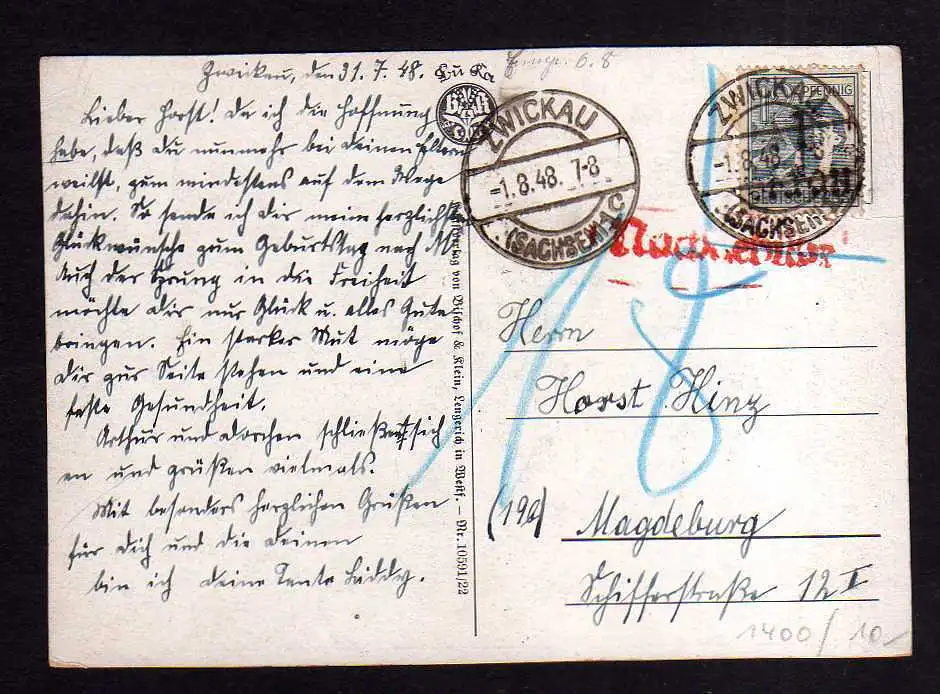 Zwickau, den 31. 7. 48.
Lieber Horst! Da ich die Hoffnung
habe, daß du nunmehr bei deinen Eltern
weilst, zum mindestens auf dem Wege
dahin. So sende ich dir meine herzlichsten
Glückwünsche zum Geburtstag nach M
Auch der Sprung in die Freiheit
möchte dir nur Glück u. alles Gute
bringen. Ein starker Mut möge
dir zur Seite stehen und eine
feste Gesundheit.
Arthur und Dorchen schließen sich
an und grüßen vielmals.
Mit besonders herzlichen Grüßen
für dich und die deinen
bin ich deine Tante Liddy.
BuKa
B&K
von Bischof & Klein, Lengerich in Westf. – Nr. 10591/22
6. 8
ZWICKAU
-1.8.48. 7-8
(SACHSEN) C
PFENNIG
ZWICKAU
-1.8.48
(SACHSEN)
Nachgebühr
18
Herrn
Horst Hinz
Magdeburg
Schifferstraße 12 I
1400/10